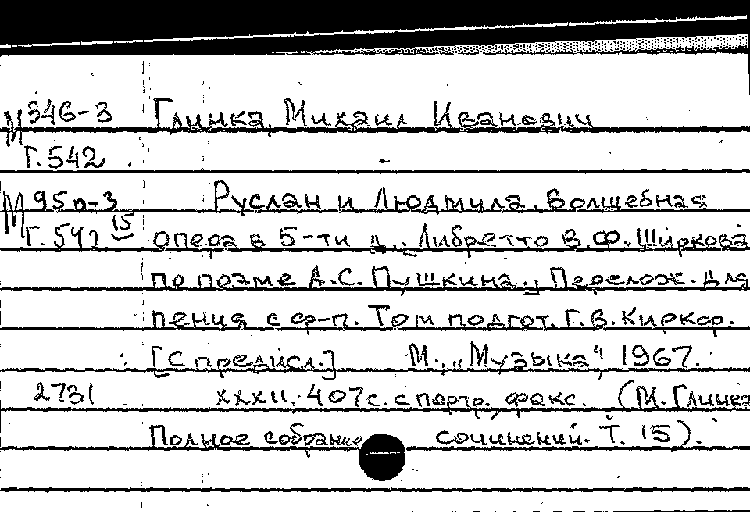 М 546-3 Глинка, Михаил Иванович
Г.542
М 95п-3 Руслан и Людмила. Волшебная
Г.542 15 опера в 5-ти д., Либретто В.Ф. Ширкова
по поэме А.С. Пушкина., Перелож. для
пения с ф-п. Том подгот. Г.В. Киркор.
[С предисл.] М., „Музыка“, 1967.
2731 XXXII, 407с. с портр., факс. (М. Глинка
Полное собрание сочинений. Т. 15).